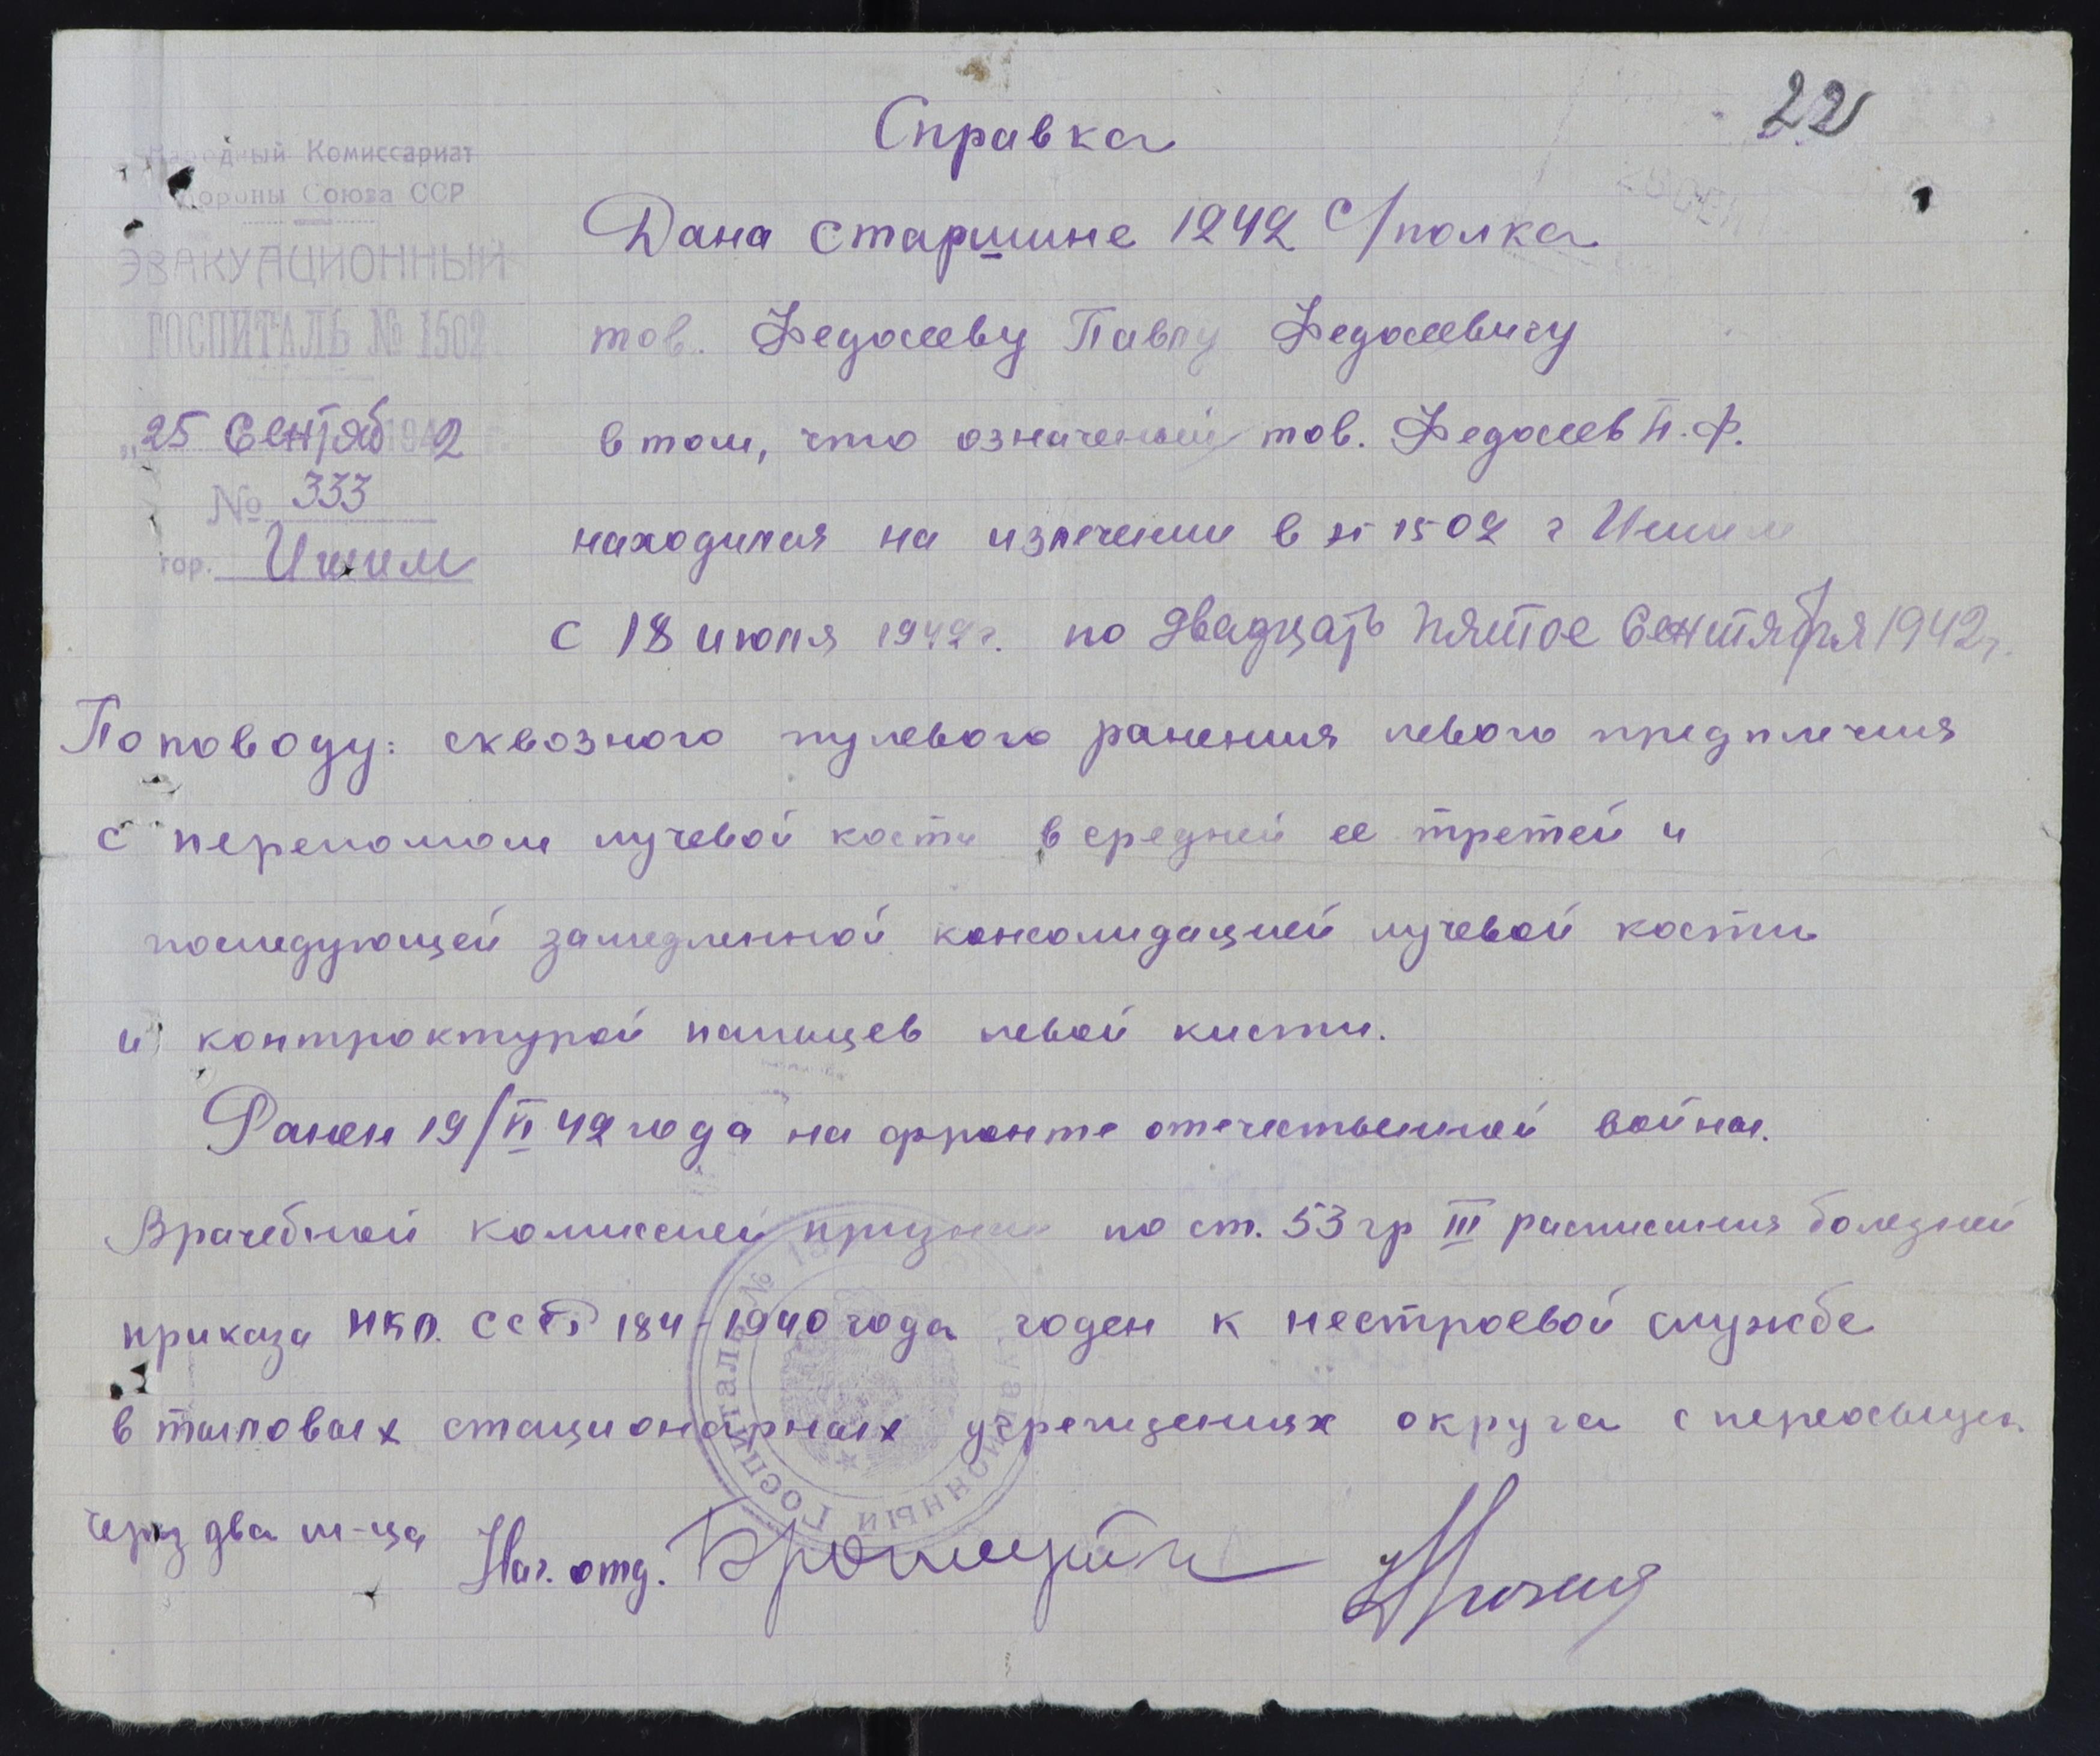 22
Справка
Народный Комиссариат
Обороны Союза ССР
ЭВАКУАЦИОННЫЙ
ГОСПИТАЛЬ № 1502
„25 Сентяб 1942
№ 333
гор. Ишим
Дана старшине 1242 с/полка
тов. Федосееву Павлу Федосеевичу
в том, что означеный тов. Федосеев П.Ф.
находился на излечении в эг 1502 г Ишим
с 18 июля 1942 г. по двадцать пятое Сентября 1942 г.
По поводу: сквозного пулевого ранения левого предплечия
с переломом лучевой кости в средней ее третей и
последующей замедленной консолидацией лучевой кости
и контрактурой пальцев левой кисти.
Ранен 19/VI 42 года на фронте отечественной войны.
Врачебной комиссией признан по ст. 53 гр III расписания болезней
приказа НКО. СССР 184-1940 года годен к нестроевой службе
в тыловых стационарных учреждениях округа с переосвид.
через два м-ца
Нач. отд.
Госпиталь № 15